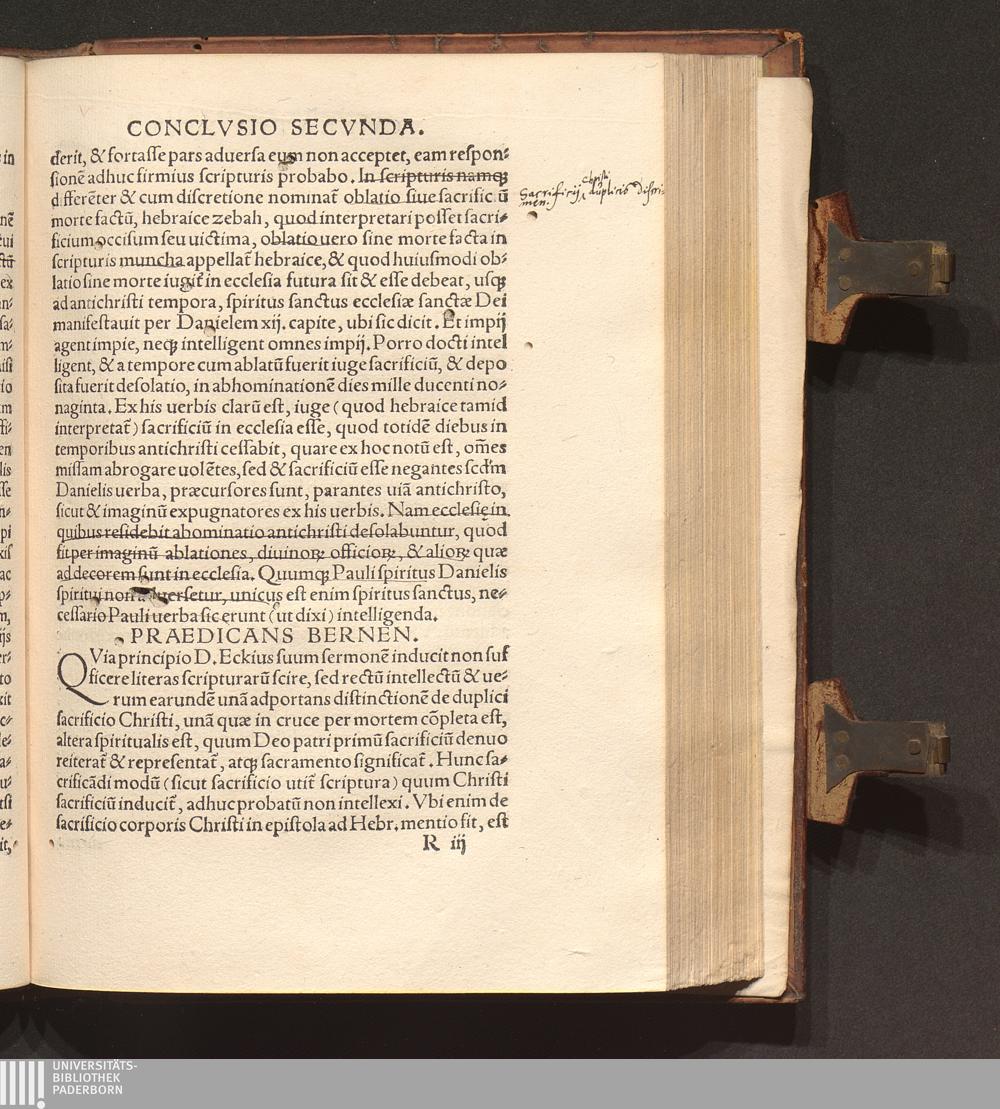 CONCLVSIO SECVNDA.
derit, & fortasse pars aduersa eum non acceptet, eam respon⸗
sionē adhuc firmius scripturis probabo. In scripturis namqꝫ
d fferēter & cum discretione nominat̄ oblatio siue sacrific ū
morte factū, hebraice zebah, quod interpretari posset sacri⸗
ficium occisum seu uictima, oblatio uero sine morte facta in
scripturis muncha appellat̄ hebraice, & quod huiusmodi ob⸗
latio sine morte iugit̄ in ecclesia futura sit & esse debeat, usqꝫ
ad antichristi tempora, spiritus sanctus ecclesiæ sanctæ Dei
manifestauit per Danielem xij. capite, ubi sic dicit. Et impij
agent impie, neqꝫ intelligent omnes impij. Porro docti intel
ligent, & a tempore cum ablatū fuerit iuge sacrificiū, & depo
sita fuerit desolatio, in abhominationē dies mille ducenti no⸗
naginta. Ex his uerbis clarū est, iuge (quod hebraice tamid
interpretat̄) sacrificiū in ecclesia esse, quod totidē diebus in
temporibus antichristi cessabit, quare ex hoc notū est, om̄es
missam abrogare uolētes, sed & sacrificiū esse negantes scd̄m
Danielis uerba, præcursores sunt, parantes uiā antichristo,
sicut & imaginū expugnatores ex his uerbis. Nam ecclesię in
quibus residebit abominatio antichristi desolabuntur, quod
fit per imaginū ablationes, diuinoꝝ officioꝝ, & alioꝝ quæ
ad decorem sunt in ecclesia. Quumqꝫ Pauli spiritus Danielis
spiritui non aduersetur, unicus est enim spiritus sanctus, ne⸗
cessario Pauli uerba sic erunt (ut dixi) intelligenda.
PRAEDICANS BERNEN.
QVia principio D. Eckius suum sermonē inducit non suf
ficere literas scripturarū scire, sed rectū intellectū & ue⸗
rum earundē unā adportans distinctionē de duplici
sacrificio Christi, unā quæ in cruce per mortem cōpleta est,
altera spiritualis est, quum Deo patri primū sacrificiū denuo
reiterat̄ & representat̄, atqꝫ sacramento significat̄. Hunc sa⸗
crificādi modū (sicut sacrificio utit̄ scriptura) quum Christi
sacrificiū inducit̄, adhuc probatū non intellexi. Vbi enim de
sacrificio corporis Christi in epistola ad Hebr. mentio fit, est
R iij
Christi
Sacrificij duplicis discri
men.
UNIVERSITÄTS-
BIBLIOTHEK
PADERBORN